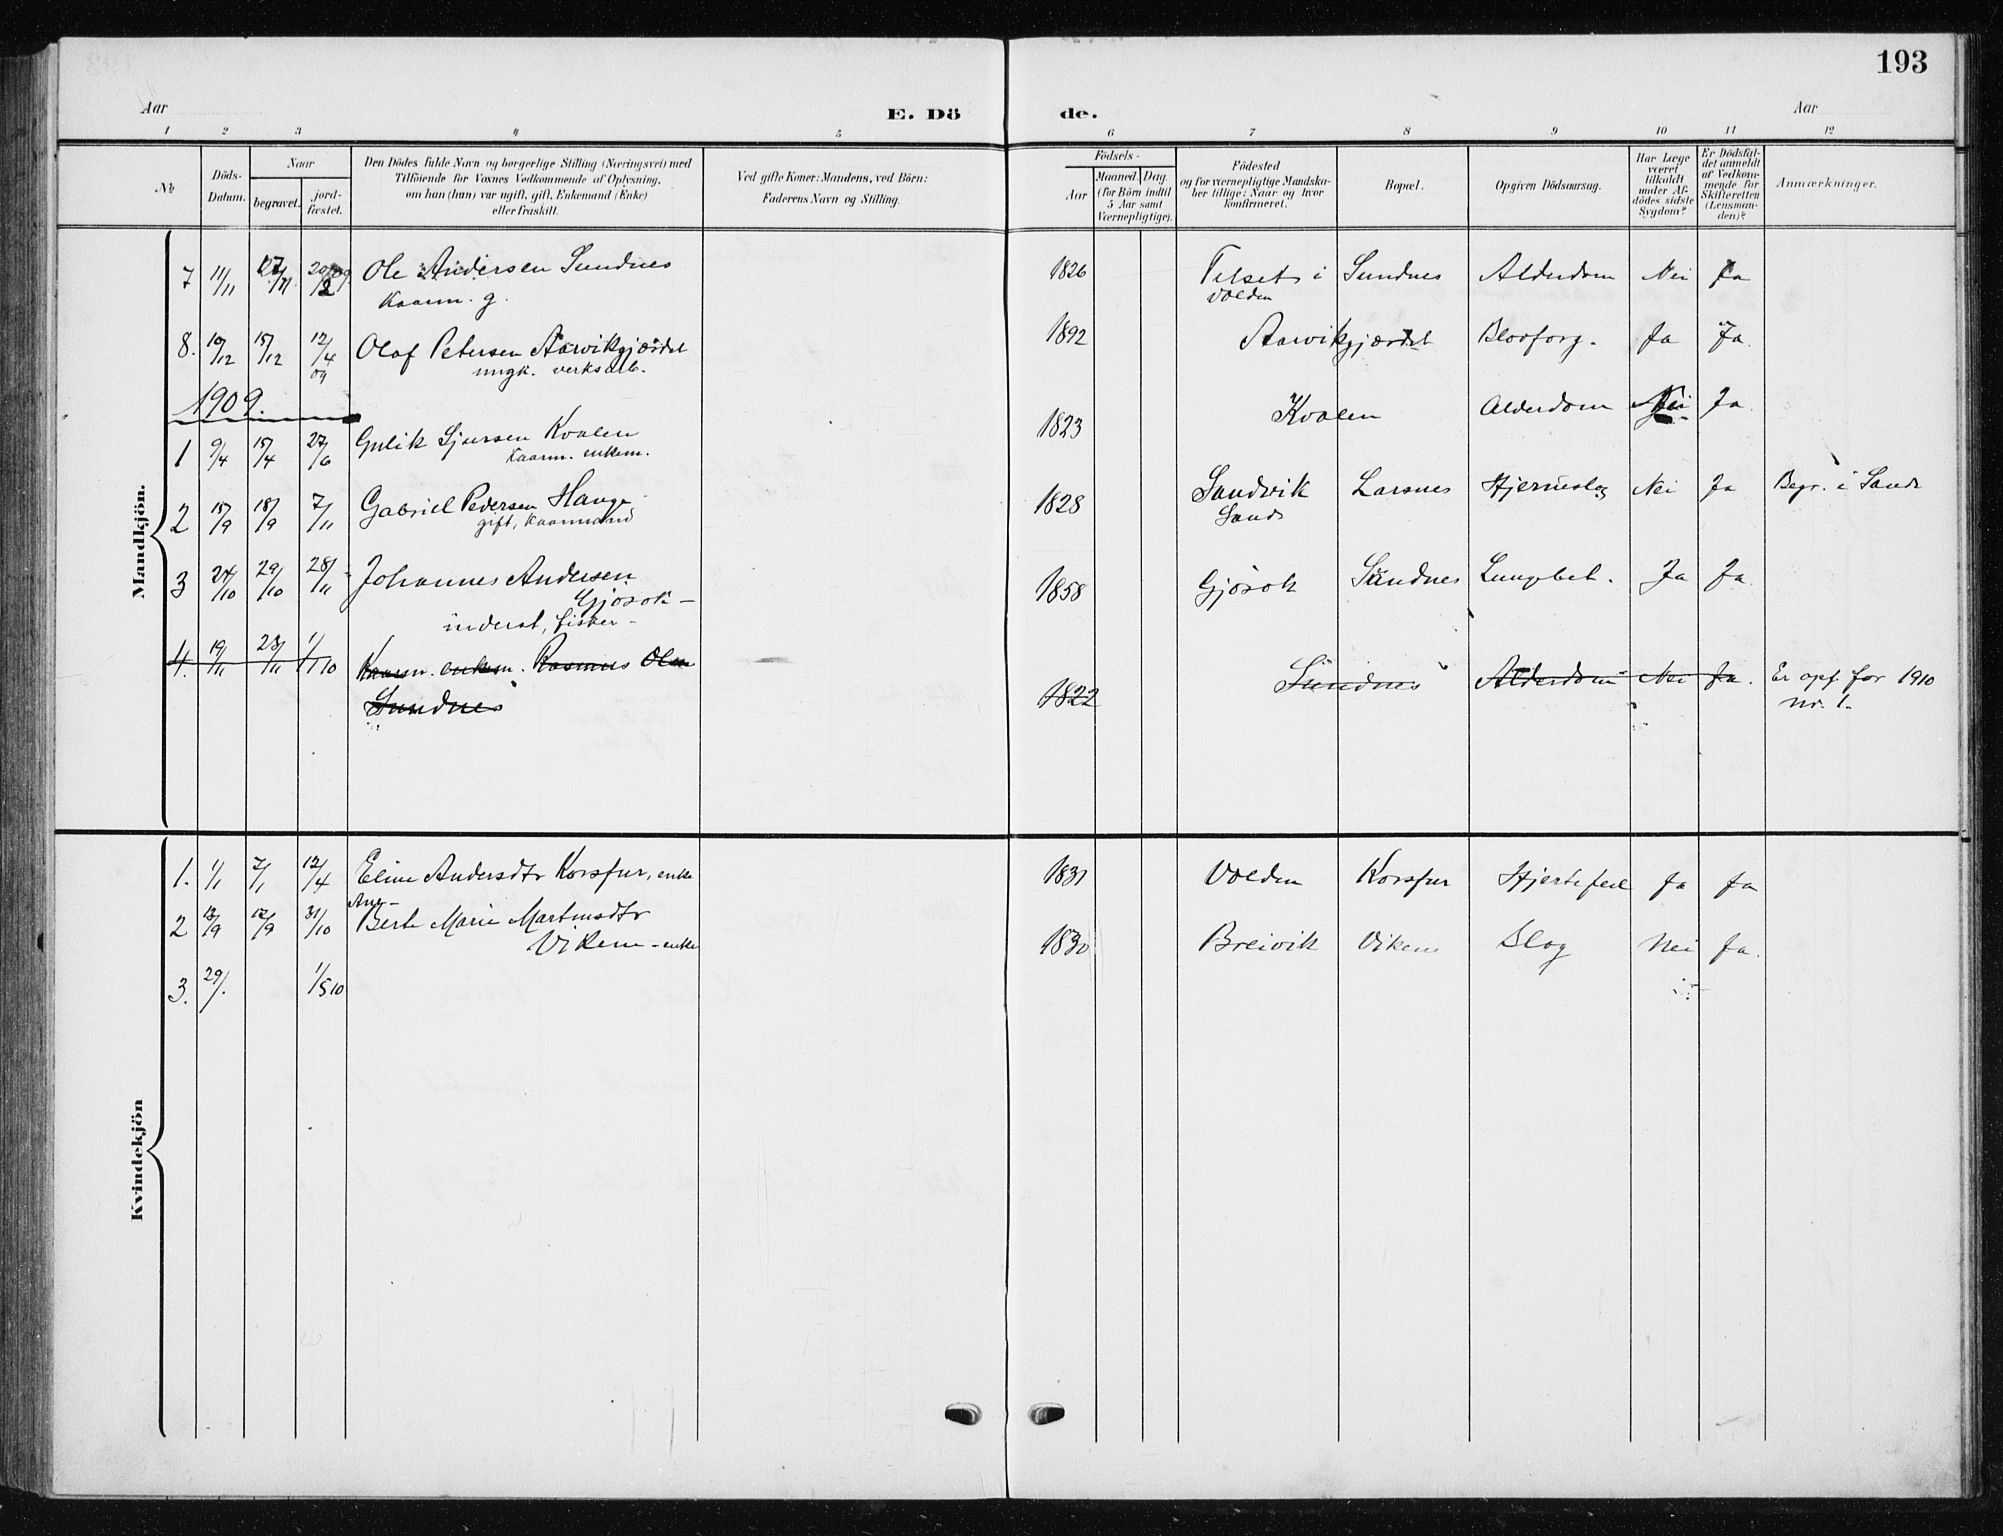 193
Aar E. Dö de. Aar
1 2 3 4 5 6 7 8 9 10 11 12
№ Döds-Datum. Naar begravet. jord-fæstet. Den Dödes fulde Navn og borgerlige Stilling (Næringsvei) med Tilföiende for Voxnes Vedkommende af Oplysning, om han (hun) var ugift, gift, Enkemand (Enke) eller fraskilt. Ved gifte Koner: Mandens, ved Börn: Faderens Navn og Stilling. Födsels- Aar Maaned. Dag. (for Börn indtil 5 Aar samt Værnepligtige). Födested og for værnepligtige Mandskaber tillige: Naar og hvor konfirmeret. Bopæl. Opgiven Dödsaarsag. Har Læge været tilkaldt under Afdödes sidste Sygdom? Er Dödsfaldet anmeldt af Vedkommende for Skifteretten (Lensmanden)? Anmærkninger.
Mandkjön.
7 11/11 27/11 20/2 09 Ole Andersen Sundnes 1826 Tilset i Sundnes Alderdom Nei Ja
Kaarm. g. Volden
8. 10/12 15/12 12/4 09 Olaf Petersen Aarvikgjærdet 1892 Aarvikgjærdet Blodforg. Ja Ja
ungk. verksarb.
1909.
1 9/4 15/4 27/6 Gulik Sjursen Kvalen 1823 Kvalen Alderdom Nei Ja
Kaarm. enkem.
2 15/9 18/9 7/11 Gabriel Pedersen Hauge 1828 Sandvik Larsnes Hjerneslag Nei Ja Begr. i Sande
gift, Kaarmand Sande
3 24/10 29/10 28/11 Johannes Andersen 1858 Gjøsok Sundnes Lungebet. Ja Ja
Gjøsok -
inderst, fisker -
4. 19/11 28/11 1/1 10 Kaarm. enkem. Rasmus Olsen 1822 Sundnes Alderdom Nei Ja. Er opf for 1910
Sundnes nr. 1.
Kvindekjön
1. 1/1 7/1 12/4 Eline Andersdtr Korsfur, enke 1831 Volden Korsfur Hjertefeil Ja Ja
2 13/9 17/9 31/10 Berte Marie Martinusdtr 1830 Breivik Viken Slag Nei Ja.
Viken - enke
3. 29/. 1/5 10